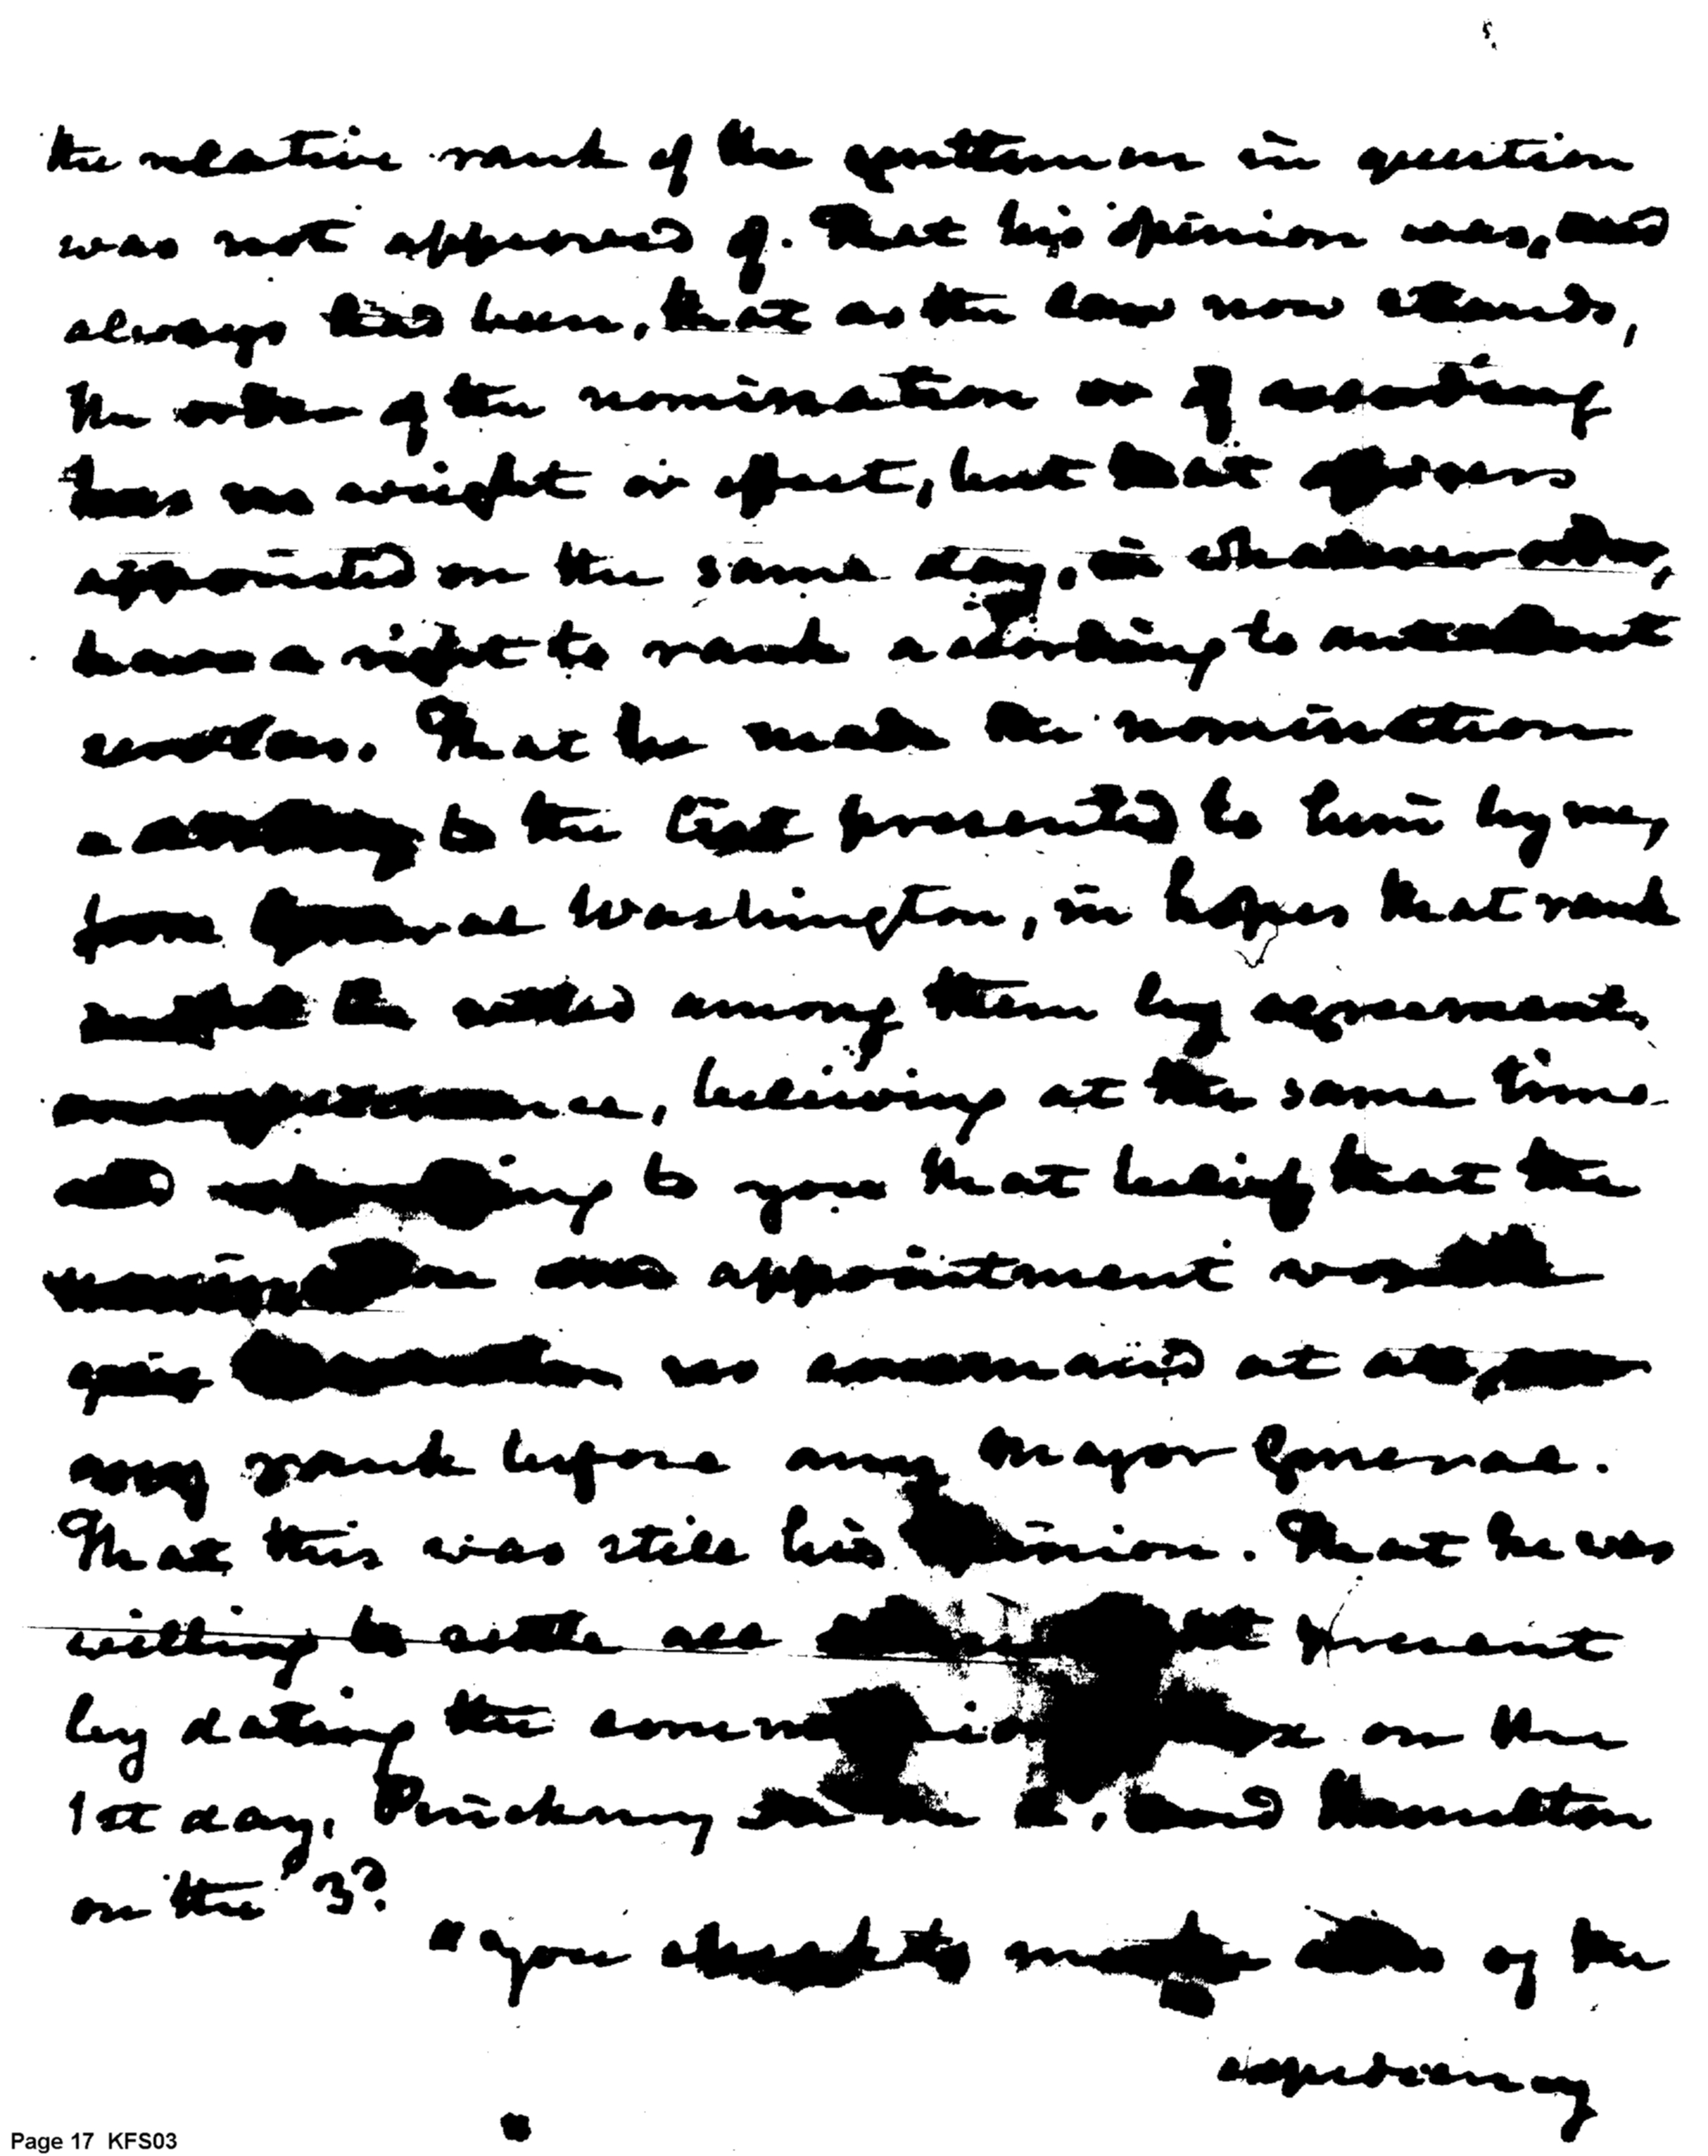 the relative rank of the gentlemen in question
was not approved of. That his opinion was, and
always had been, that as the law now stands,
the order of the nomination or of recording
has no weight or effect, but that officers
appointed on the same day, in whatever order,
have a right to rank according to antecedent
services. That he made the nomination
according to the list presented to him by me,
from General Washington, in hopes that rank
might be settled among them by agreement
or acquiescence, believing at the same time
and expressing to you that belief that the
nomination and appointment would
give Hamilton no command at all, nor
any rank before any Major General.
That this was still his opinion. That he was
willing to settle all at present
by dating the commissions on the
1st day, Pinckney on the 2, and Hamilton
on the 3d.
" you the of the
expediency
Page 17 KFS03